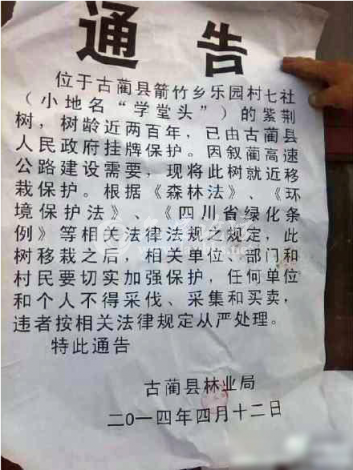 通告
位于古蔺县箭竹乡乐园村七社
（小地名“学堂头”）的紫荆
树，树龄近两百年，已由古蔺县
人民政府挂牌保护。因叙蔺高速
公路建设需要，现将此树就近移
栽保护。根据《森林法》、《环
境保护法》、《四川省绿化条
例》等相关法律法规之规定，此
树移栽之后，相关单位、部门和
村民要切实加强保护，任何单位
和个人不得采伐、采集和买卖，
违者按相关法律规定从严处理。
特此通告
古蔺县林业局
二0一四年四月十二日